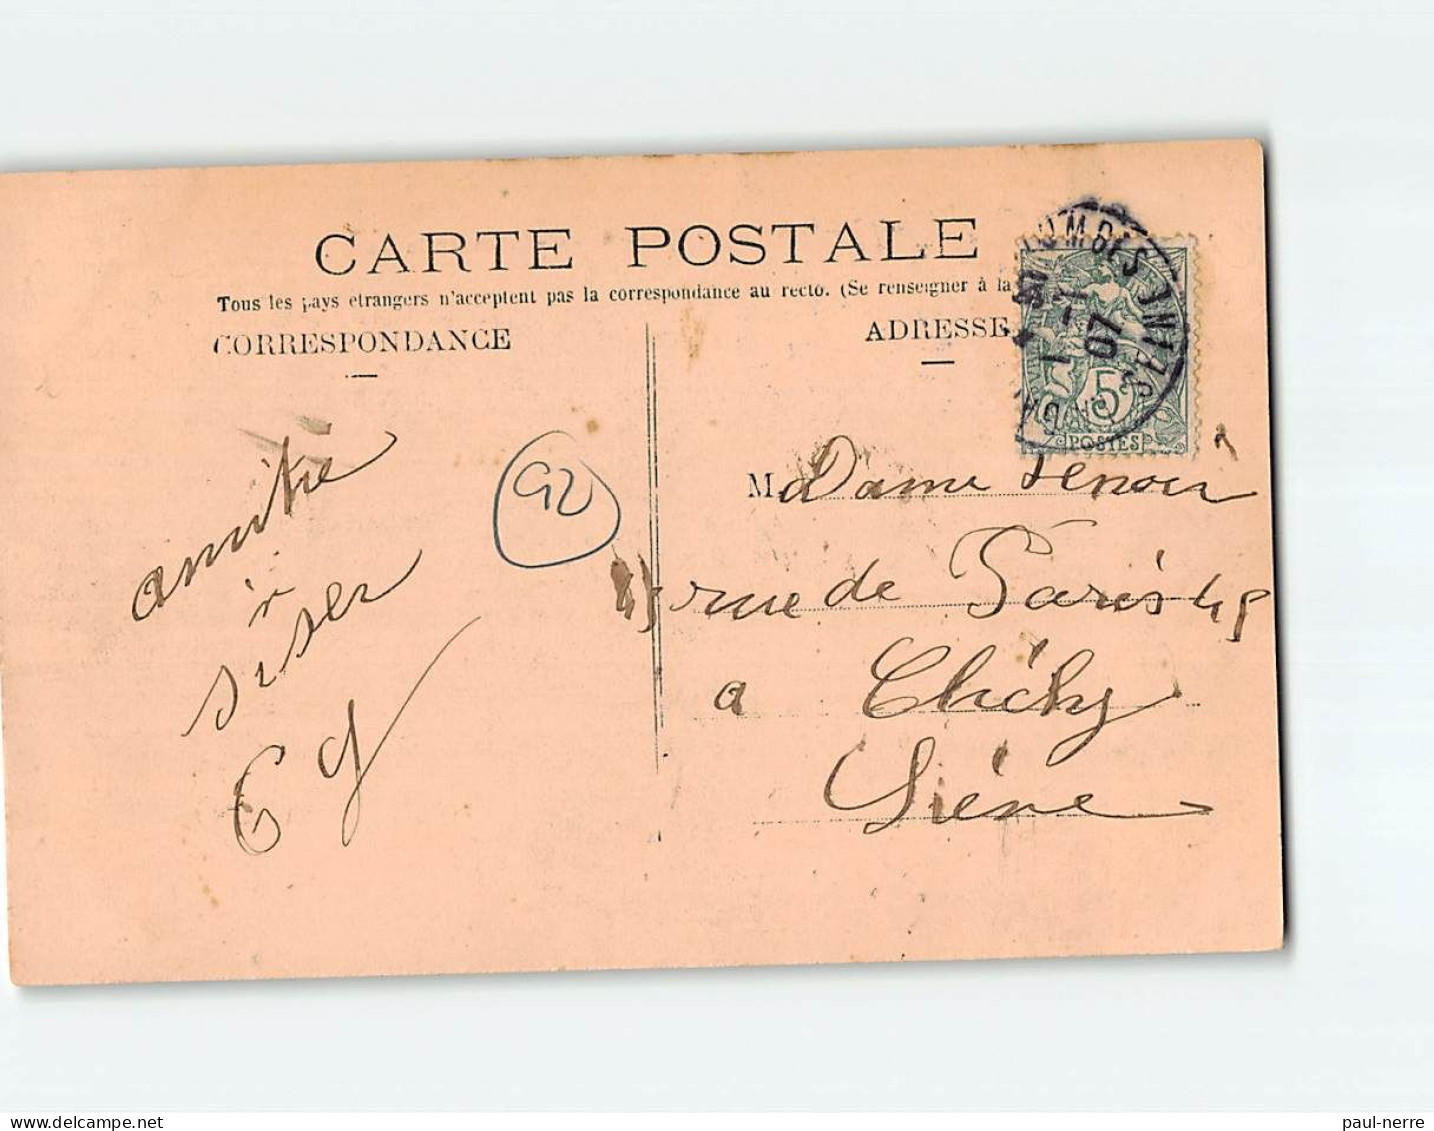 CARTE POSTALE
Tous les pays etrangers n'acceptent pas la correspondance au recto. (Se renseigner à la
CORRESPONDANCE
ADRESSE
07
5
POSTES
amitie
92
MaDame Lenoir
rue de Paris 45
a Clichy
Siene
paul-nerre